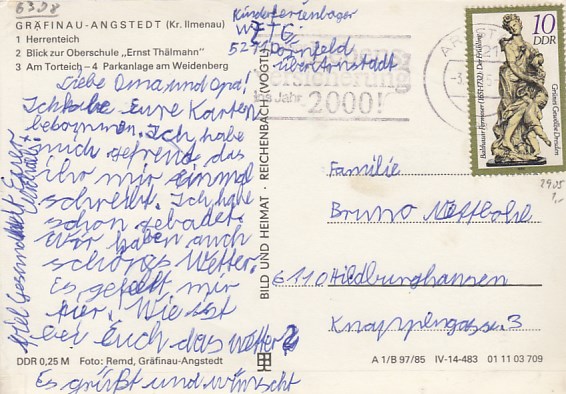 63.98
GRÄFINAU-ANGSTEDT (Kr. Ilmenau)
1 Herrenteich
2 Blick zur Oberschule „Ernst Thälmann"
3 Am Torteich – 4 Parkanlage am Weidenberg
Kinderferienlager
5211 Dornfeld
über Arnstadt
Liebe Oma und Opa!
Ich habe Eure Karten
bekommen. Ich habe
mich gefreud das
ihr mir einmal
schreibt. Ich habe
schon gebadet.
Wir haben auch
schönes Wetter.
Es gefällt mir
hier. Wie ist
bei Euch das Wetter?
Es grüßt und wünscht
viel Gesundheit Euer
ins Jahr 2000!
BILD UND HEIMAT · REICHENBACH (VOGTL)
10
DDR
Balthasar Permoser (1651-1732) · Der Frühling
Grünes Gewölbe Dresden
2905
1,-
Familie
Bruno Nettbohl
6110 Hildburghausen
Knappengasse 3
DDR 0,25 M Foto: Remd, Gräfinau-Angstedt
A 1/B 97/85 IV-14-483 01 11 03 709